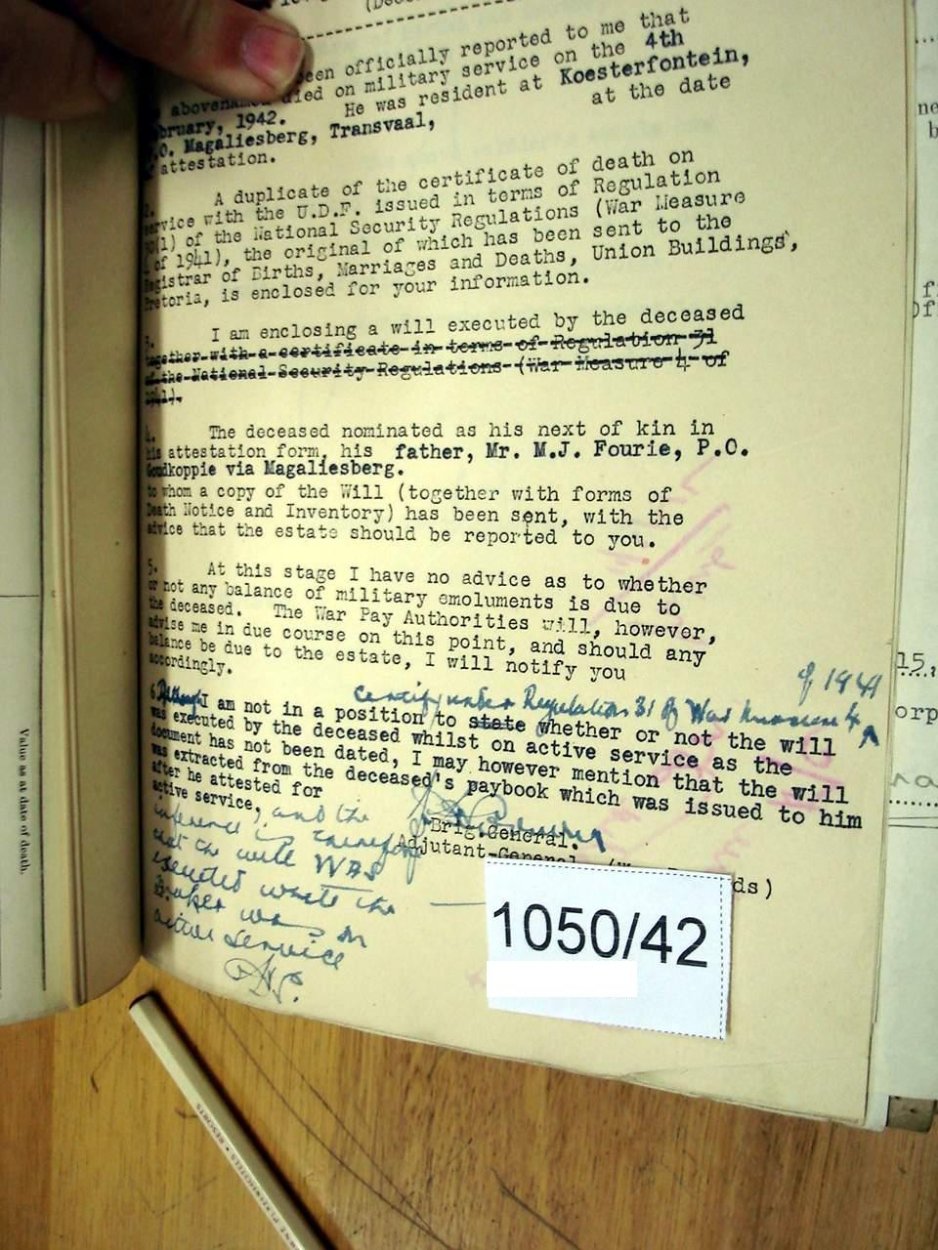 (Dec
been officially reported to me that
abovenamed died on military service on the 4th
bruary, 1942. He was resident at Koesterfontein,
.O. Magaliesberg, Transvaal, at the date
attestation.
2. A duplicate of the certificate of death on
ervice with the U.D.F. issued in terms of Regulation
(1) of the National Security Regulations (War Measure
of 1941), the original of which has been sent to the
egistrar of Births, Marriages and Deaths, Union Buildings,
retoria, is enclosed for your information.
3. I am enclosing a will executed by the deceased
together with a certificate in terms of Regulation 31
of the National Security Regulations (War Measure 4 of
1941).
4. The deceased nominated as his next of kin in
his attestation form, his father, Mr. M.J. Fourie, P.O.
Goudkoppie via Magaliesberg.
to whom a copy of the Will (together with forms of
Death Notice and Inventory) has been sent, with the
advice that the estate should be reported to you.
5. At this stage I have no advice as to whether
or not any balance of military emoluments is due to
the deceased. The War Pay Authorities will, however,
advise me in due course on this point, and should any
balance be due to the estate, I will notify you
accordingly.
of 1941
certify under Regulation 31 of War Measure 4
6. Although I am not in a position to state whether or not the will
was executed by the deceased whilst on active service as the
document has not been dated, I may however mention that the will
was extracted from the deceased's paybook which was issued to him
after he attested for
active service, and the
inference is therefore
that the will WAS
executed whilst the
maker was on
active service
Brig.General.
Adjutant-General
ds)
1050/42
Value as at date of death.
ne
b
f
of
15,
orp
RESORTS